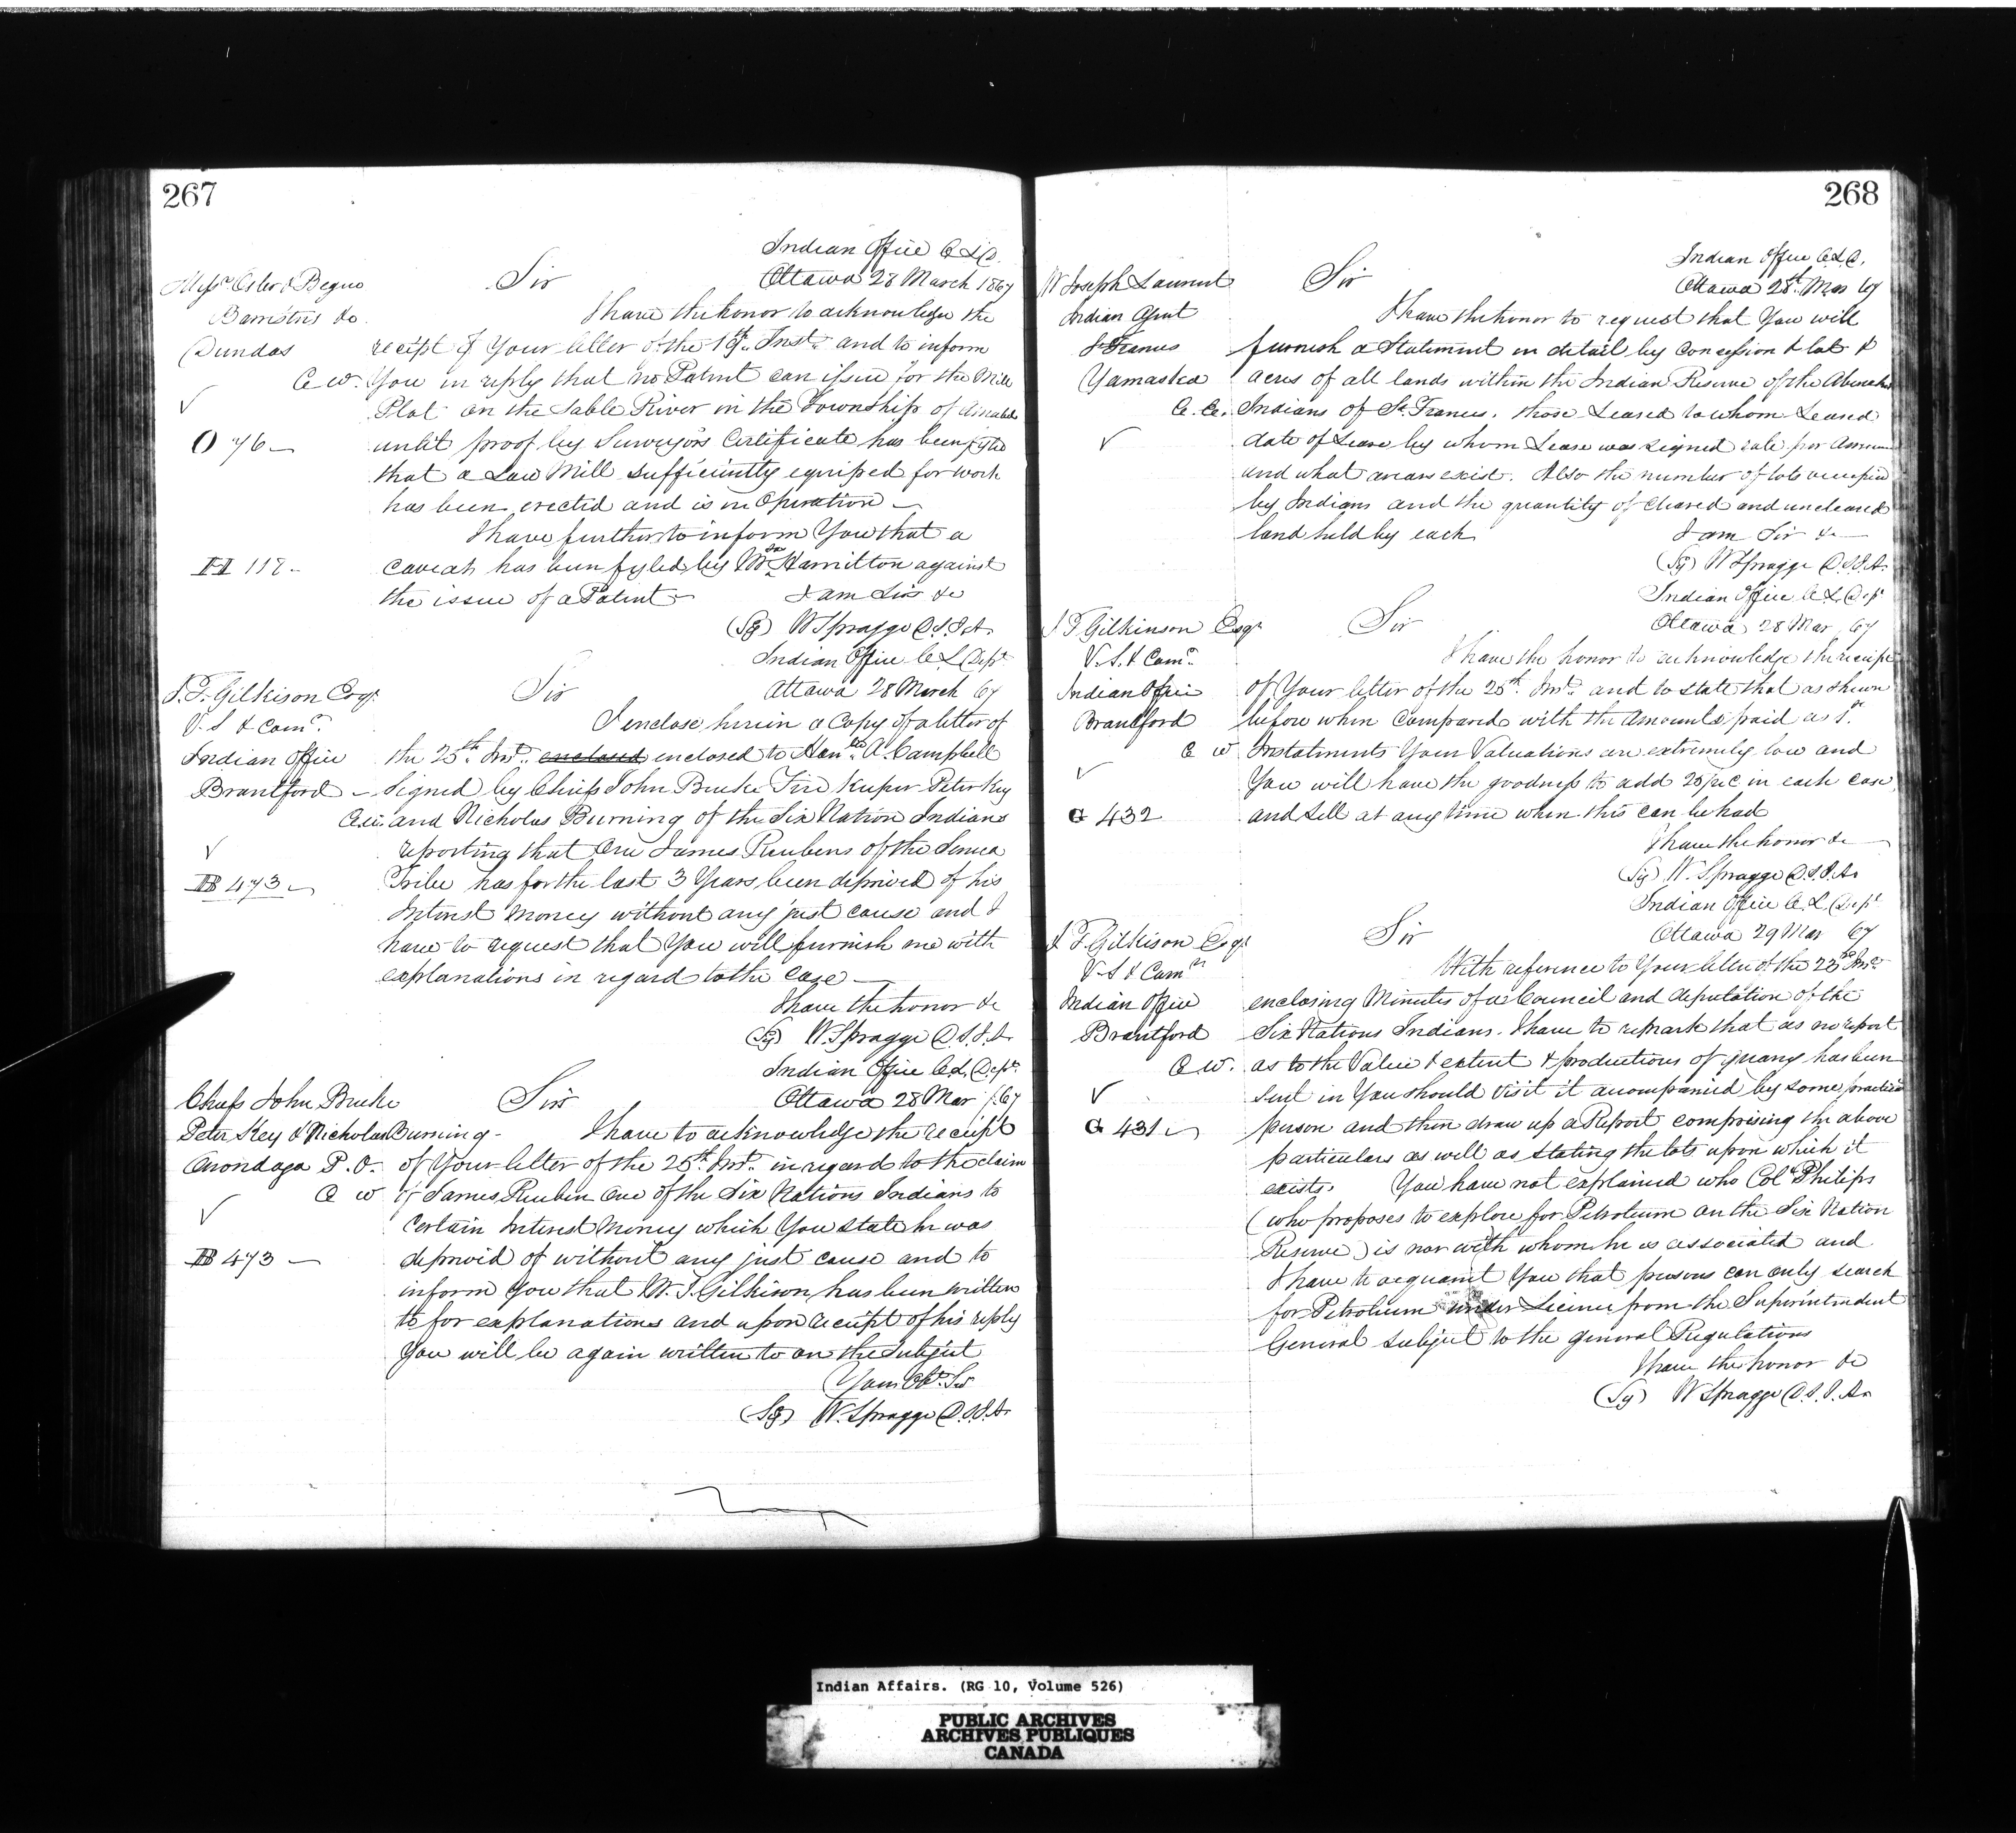 267
Indian Office C L D.
Messrs Osler & Begue
Sir
Ottawa 28 March 1867
Barristers &c.
I have the honor to acknowledge the
Dundas
receipt of Your letter of the 19th Inst. and to inform
C W. You in reply that no Patent can issue for the Mill
Plot on the Sable River in the Township of
O 76
until proof by Surveyors Certificate has been fyled
that a Saw Mill sufficiently equiped for work
has been erected and is in Operation
I have further to inform You that a
H 118
caveat has been fyled by Mr Hamilton against
the issue of a Patent
I am Sir &c
(Sg) W Spragge D.S.I.A.
Indian Office C L Dept
J. T. Gilkison Esqr
Sir
Ottawa 28 March 67
V. S & Comr
I enclose herein a Copy of a letter of
Indian Office
the 25th Inst. enclosed enclosed to Honble A. Campbell
Brantford
signed by Chiefs John Buske Fire Keeper Peter Key
C.W. and Nicholas Burning of the Six Nation Indians
reporting that One James Reubens of the Seneca
B 473
Tribe has for the last 3 Years been deprived of his
Interest money without any just cause and I
have to request that You will furnish me with
explanations in regard to the Case
I have the honor &c
(Sg) W. Spragge D.S.I.A
Indian Office C.L. Dept.
Chiefs John Buske
Sirs
Ottawa 28 Mar /67
Peter Key & Nicholas Burning
I have to acknowledge the receipt
Onondaga P.O. of Your letter of the 25th Inst. in regard to the claim
C W of James Reuben One of the Six Nations Indians to
certain Interest Money which You state he was
B 473
deprived of without any just cause and to
inform You that W. J. Gilkison has been written
to for explanations and upon receipt of his reply
You will be again written to on the Subject
Your Obt. Sert
(Sg) W. Spragge D.S.I.A.
268
Indian Office C.L.D.
W Joseph Laurent
Sir
Ottawa 28th Mar 67
Indian Agent
I have the honor to request that You will
St Francis
furnish a Statement in detail by Concession & lot &
Yamaska
acres of all lands within the Indian Reserve of the Abenakis
C.E. Indians of St Francis. those Leased to whom Leased
date of Lease by whom Lease was signed rate per Annum
and what arears exist. Also the number of lots occupied
by Indians and the quantity of cleared and uncleared
land held by each
I am Sir &c
(Sg) W Spragge D.S.I.A.
Indian Office C L Dept
J T Gilkinson Esqr
Sir
Ottawa 28 Mar 67
V. S. & Comr.
I have the honor to acknowledge the receipt
Indian Office
of Your letter of the 25th. Inst. and to state that as shewn
Brantford
before when Compared with the Amounts paid as 1st
C W Instalments Your Valuations are extremely low and
You will have the goodness to add 25 pr C in each case
G 432
and sell at any time when this can be had
I have the honor &c
(Sg) W. Spragge D.S.I.A.
Indian Office C.L. Dept
J T. Gilkison Esqr
Sir
Ottawa 29 Mar 67
V. S & Comr
With reference to Your letter of the 23rd Inst
Indian Office
enclosing Minutes of a Council and deputation of the
Brantford
Six Nations Indians. I have to remark that as no report
C W. as to the Value & extent & productions of quarry has been
sent in You should visit it acompanied by some practical
G 431
person and then draw up a Report comprising the above
particulars as well as stating the lots upon which it
exists. You have not explained who Col Philips
(who proposes to explore for Petroleum on the Six Nation
Reserve) is nor with whom he is associated and
I have to acquaint You that persons can only search
for Petroleum under License from the Superintendent
General subject to the general Regulations
I have the honor &c
(Sg) W Spragge D.S.I.A.
Indian Affairs. (RG 10, Volume 526)
PUBLIC ARCHIVES
ARCHIVES PUBLIQUES
CANADA